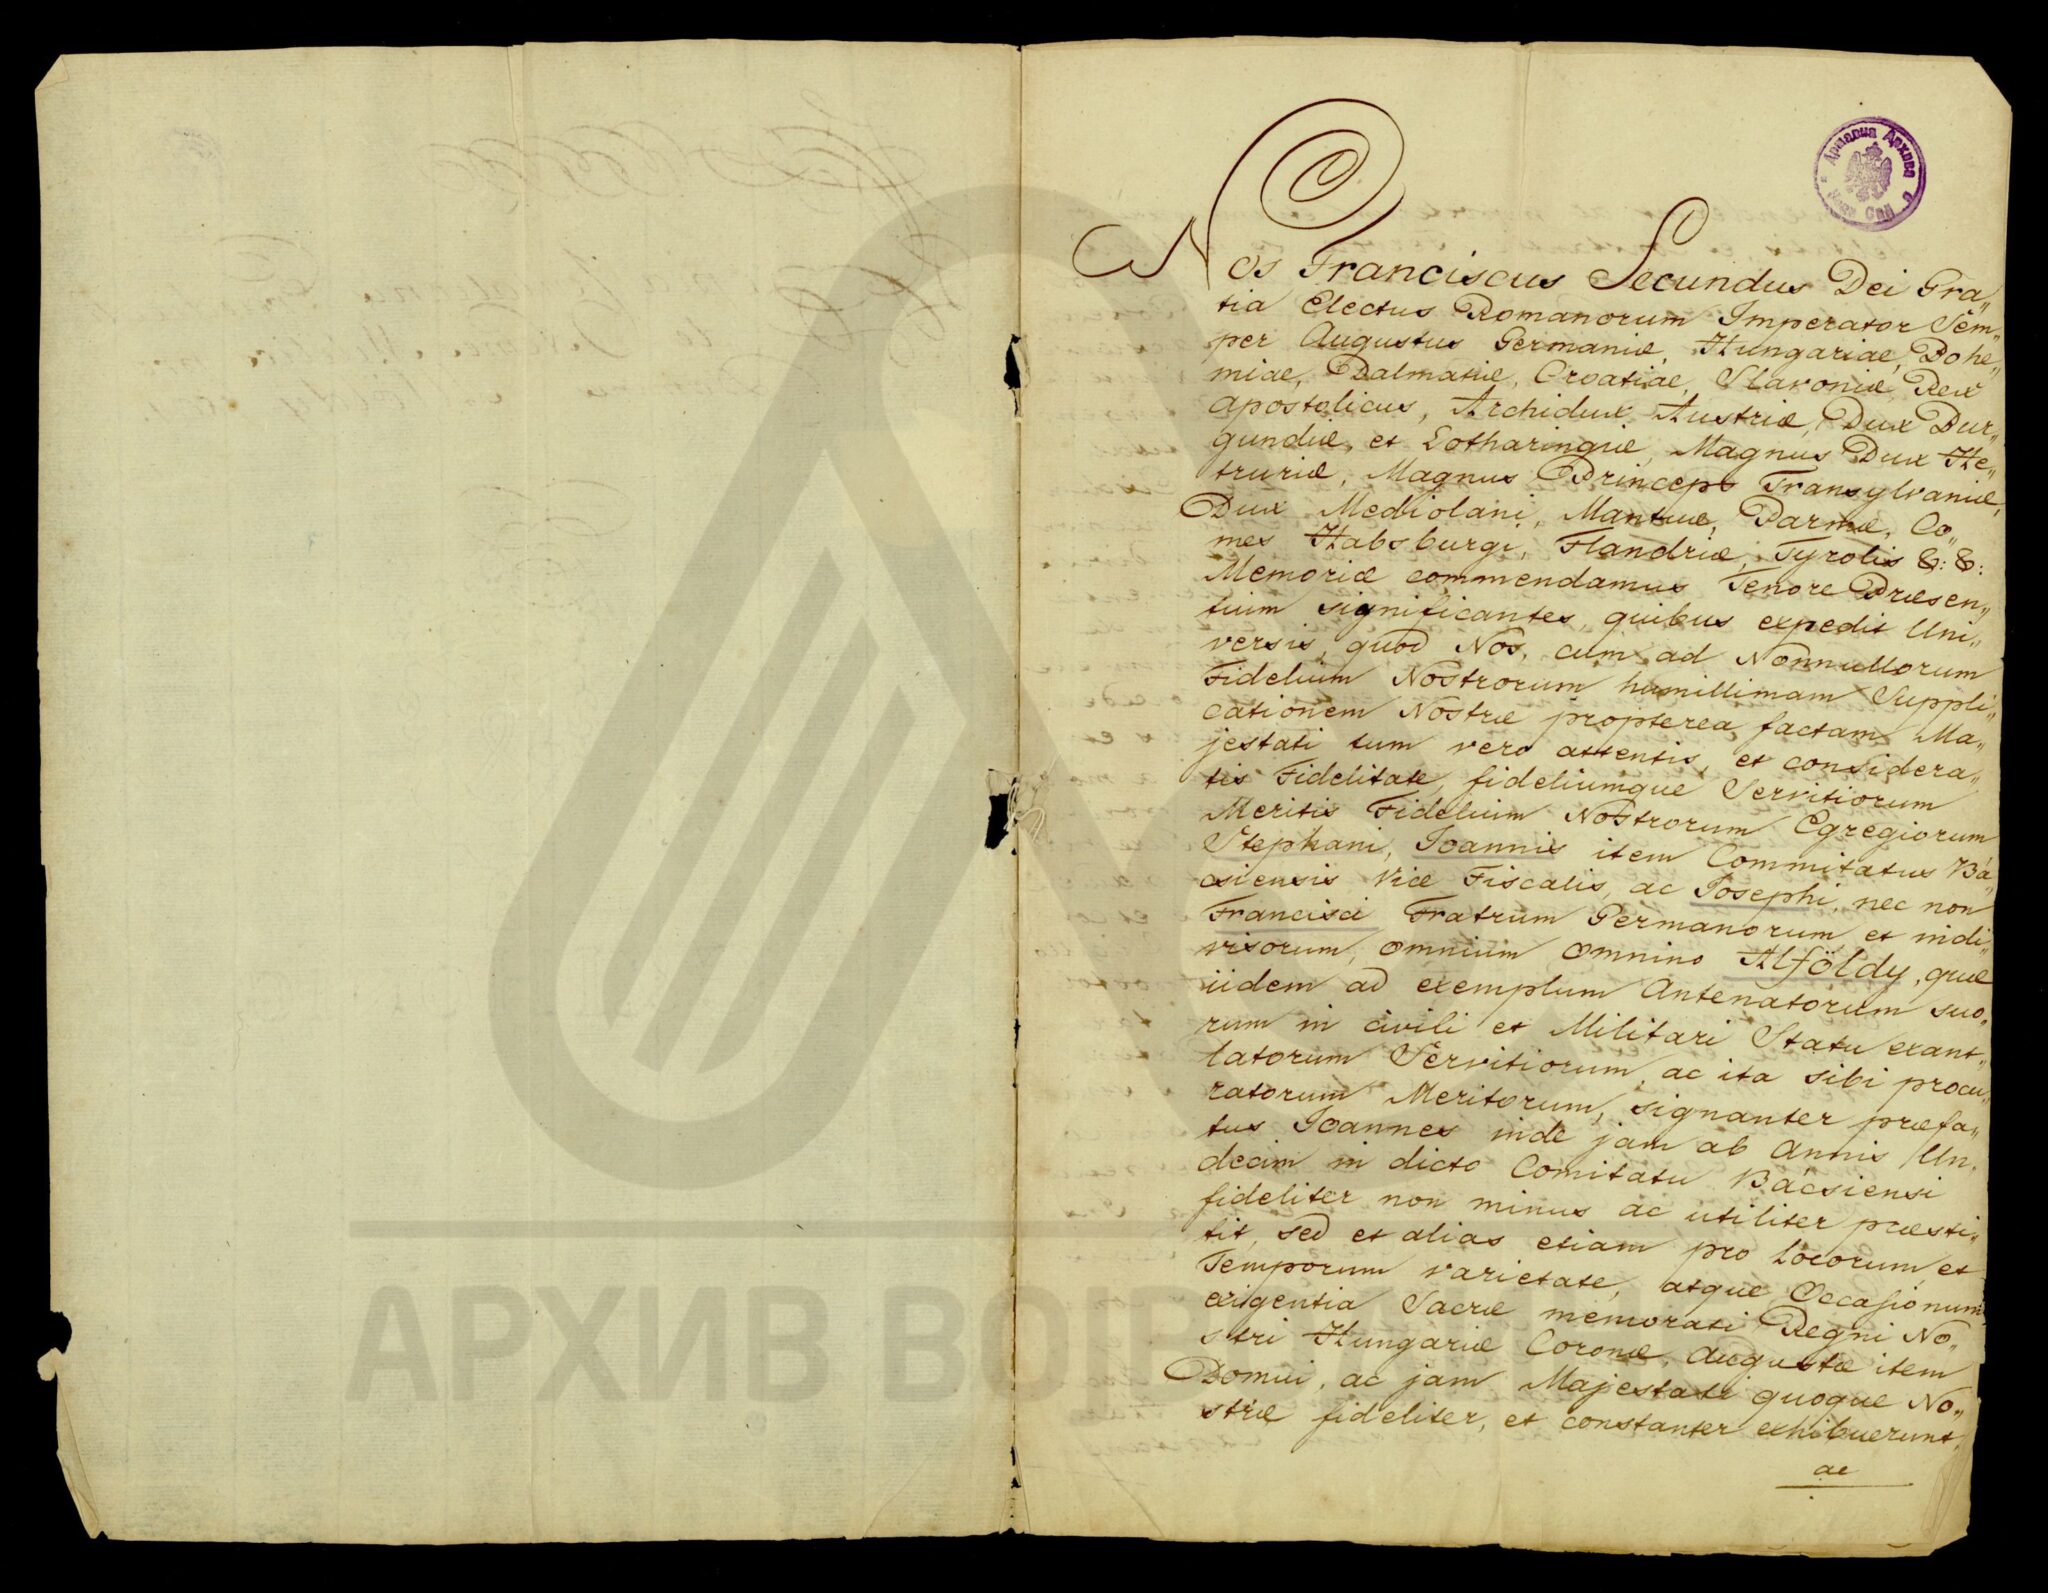 Државна Архива
Нови Сад
Nos Franciscus Secundus Dei Gra„
tia Electus Romanorum Imperator Sem„
per Augustus Germaniæ, Hungariae, Bohe„
miae, Dalmatiæ, Croatiae, Slavoniæ Rex
Apostolicus, Archidux Austriæ, Dux Bur„
gundiæ, et Lotharingiæ, Magnus Dux He„
truriæ, Magnus Princeps Transylvaniæ,
Dux Mediolani, Mantuæ, Parmæ, Co„
mes Habsburgi, Flandriæ, Tyrolis &: &:
Memoriæ commendamus Tenore Præsen„
tium significantes, quibus expedit Uni„
versis, quod Nos, cum ad Nonnullorum
Fidelium Nostrorum humillimam Suppli„
cationem Nostræ propterea factam Ma„
jestati tum vero attentis, et considera„
tis Fidelitate, fideliumque Servitiorum
Meritis Fidelium Nostrorum Egregiorum
Stephani, Joannis item Commitatus Bá„
csiensis Vice Fiscalis, ac Josephi, nec non
Francisci Fratrum Germanorum et indi„
visorum, omnium omnino Alföldy, quæ
iidem ad exemplum Antenatorum suo„
rum in civili et Militari Statu exant„
latorum Servitiorum, ac ita sibi procu„
ratorum Meritorum, signanter præfa„
tus Joannes inde jam ab Annis Un„
decim in dicto Comitatu Bácsiensi
fideliter non minus ac utiliter præsti„
tit, sed et alias etiam pro Locorum, et
Temporum varietate, atque Occasionum
exigentia Sacræ memorati Regni No„
stri Hungariæ Coronæ, Augustæ item
Domui, ac jam Majestati quoque No„
stræ fideliter, et constanter exhibuerunt,
ac
АРХИВ